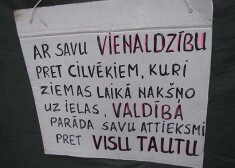 AR SAVU VIENALDZĪBU
PRET CILVĒKIEM, KURI
ZIEMAS LAIKĀ NAKŠŅO
UZ IELAS, VALDĪBA
PARĀDA SAVU ATTIEKSMI
PRET VISU TAUTU